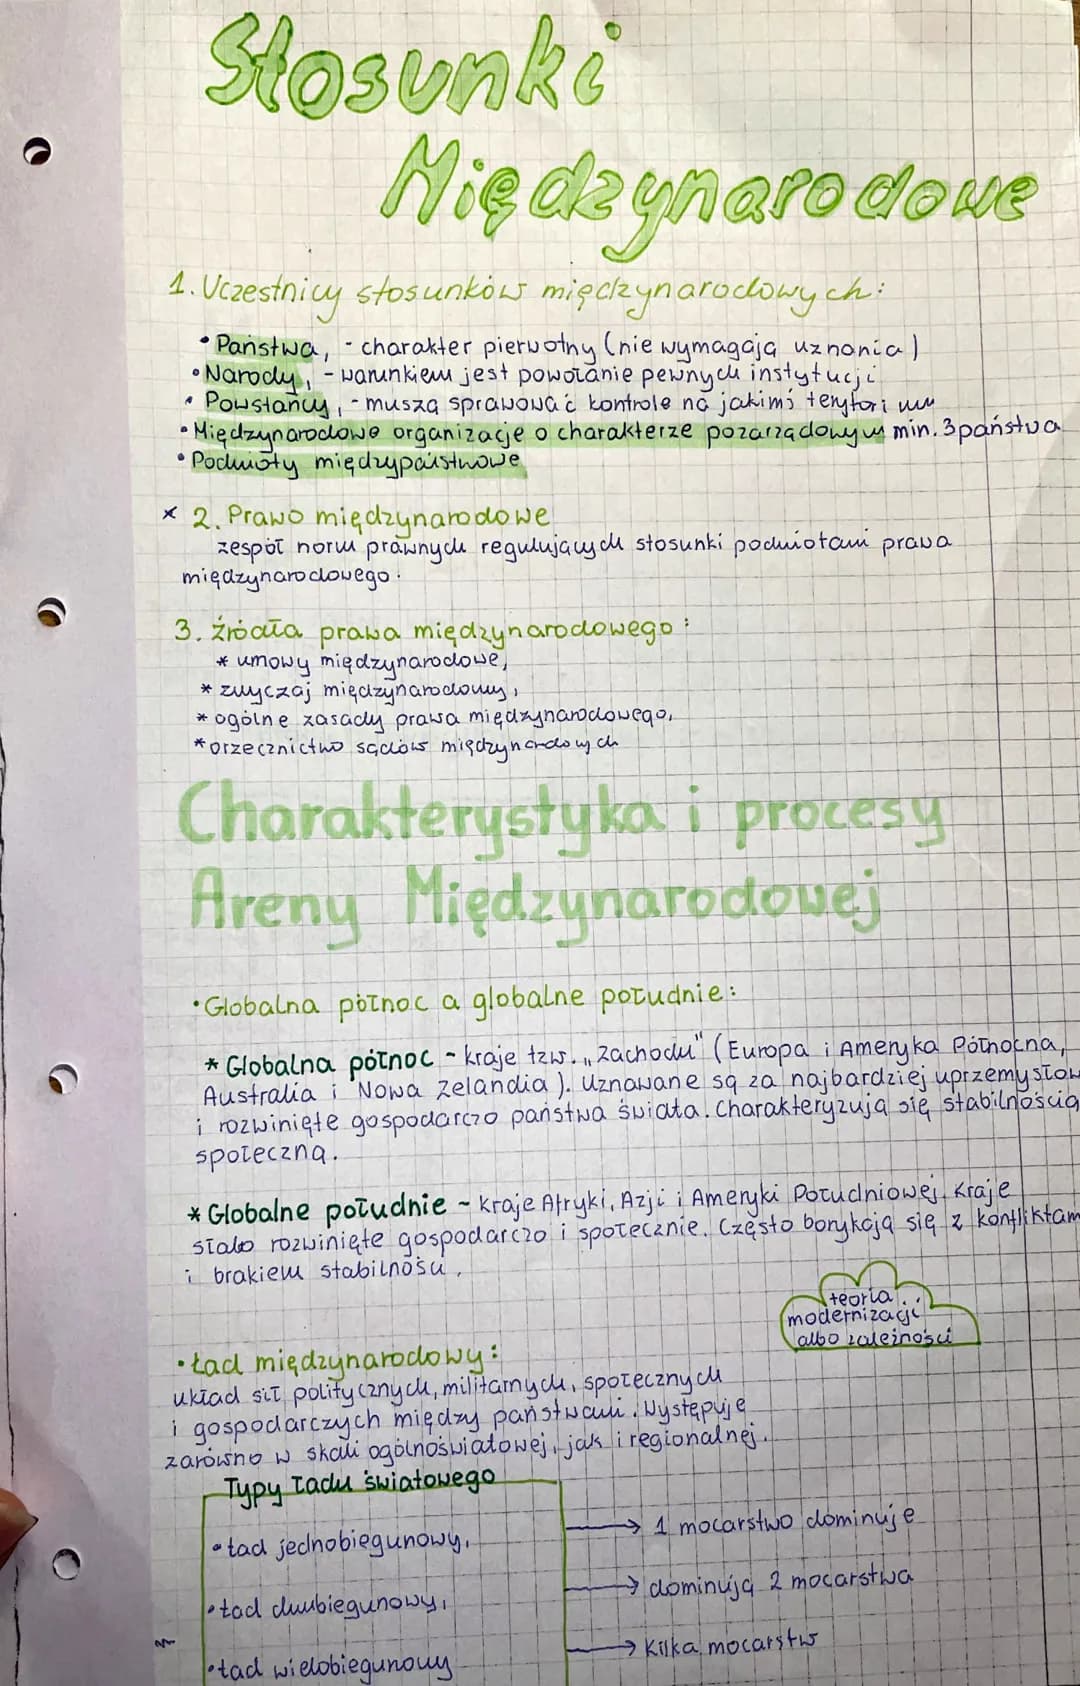 Stosunki
Międzynarodowe
1. Uczestnicy stosunków międzynarodowych:
• Państwa, - charakter pierwotny (nie wymagają uznania)
• Narody, - warunkiem jest powołanie pewnych instytucji
• Powstańcy, - muszą sprawować kontrole na jakimś terytorium
• Międzynarodowe organizacje o charakterze pozarządowym min. 3 państwa
• Podmioty międzypaństwowe
x 2. Prawo międzynarodowe
zespół norm prawnych regulujących stosunki podmiotami prawa
międzynarodowego.
3. źródła prawa międzynarodowego:
* umowy międzynarodowe,
* zwyczaj międzynarodowy,
* ogólne zasady prawa międzynarodowego,
* orzecznictwo sądów międzynardowych
Charakterystyka i procesy
Areny Międzynarodowej
• Globalna północ a globalne południe:
* Globalna północ - kraje tzw. „Zachodu" (Europa i Ameryka Północna,
Australia i Nowa Zelandia). Uznawane są za najbardziej uprzemysłow
i rozwinięte gospodarczo państwa świata. Charakteryzują się stabilnością
społeczną.
* Globalne południe ~ kraje Afryki, Azji i Ameryki Południowej. Kraje
słabo rozwinięte gospodarczo i społecznie. Często borykają się z konfliktam
i brakiem stabilności.
teoria
modernizacji
albo zależności
• Ład międzynarodowy:
układ sił politycznych, militarnych, społecznych
i gospodarczych między państwami. Występuje
zarówno w skali ogólnoświatowej, jak i regionalnej.
Typy ładu światowego
• ład jednobiegunowy, → 1 mocarstwo dominuje
• ład dwubiegunowy, → dominują 2 mocarstwa
• ład wielobiegunowy → kilka mocarstw